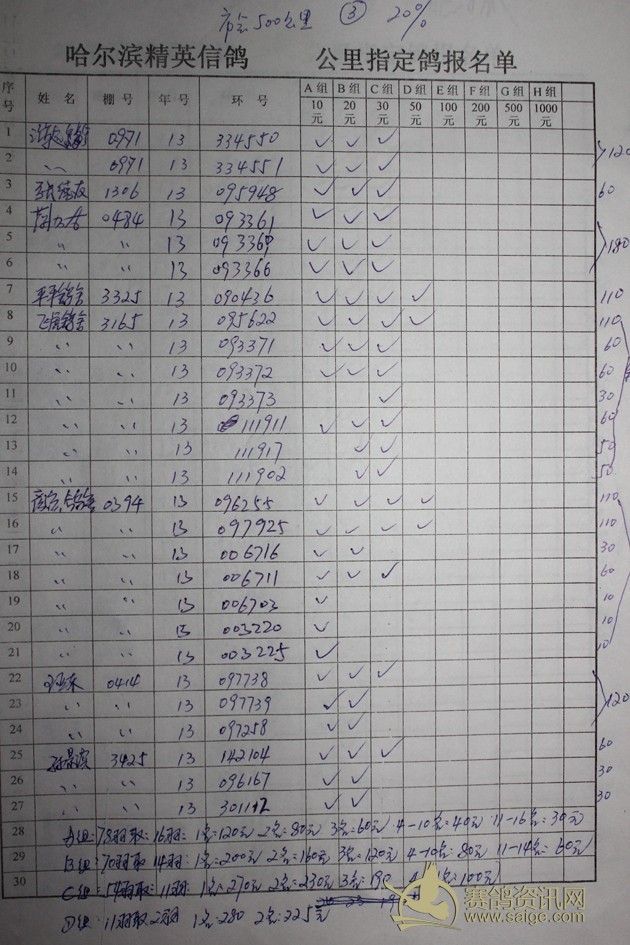 市会500公里 ③ 20%
哈尔滨精英信鸽 公里指定鸽报名单
序号 姓名 棚号 年号 环号 A组 B组 C组 D组 E组 F组 G组 H组
10元 20元 30元 50元 100元 200元 500元 1000元
1 0971 13 334550 ✓ ✓ ✓
2 〃 0971 13 334551 ✓ ✓ ✓ 120
3 1306 13 095948 ✓ ✓ ✓ 60
4 0484 13 093361 ✓ ✓ ✓
5 〃 〃 13 ✓ ✓ ✓ 180
6 〃 〃 13 093366 ✓ ✓ ✓
7 平平鸽舍 3325 13 090436 ✓ ✓ ✓ ✓ 110
8 飞虎鸽舍 3165 13 095622 ✓ ✓ ✓ ✓ 110
9 〃 〃 13 093371 ✓ ✓ ✓ 60
10 〃 〃 13 093372 ✓ ✓ ✓ 60
11 〃 〃 13 093373 ✓ 30
12 〃 〃 13 111911 ✓ ✓ ✓ 60
13 〃 〃 13 111917 ✓ ✓ 50
14 〃 〃 13 111902 ✓ ✓ 50
15 0394 13 096255 ✓ ✓ ✓ ✓ 110
16 〃 〃 13 097925 ✓ ✓ ✓ ✓ 110
17 〃 〃 13 006716 ✓ ✓ 30
18 〃 〃 13 006711 ✓ ✓ ✓ 60
19 〃 〃 13 006703 ✓ 10
20 〃 〃 13 003220 ✓ 10
21 〃 〃 13 003225 ✓ 10
22 0414 13 097738 ✓ ✓ ✓
23 〃 〃 13 097739 ✓ ✓ 120
24 〃 〃 13 097258 ✓ ✓
25 3425 13 142104 ✓ ✓ ✓ 60
26 〃 〃 13 096167 ✓ ✓ 30
27 〃 〃 13 ✓ ✓ 30
28 A组:78羽取16羽: 1名:120元 2名:80元 3名:60元 4-10名:40元 11-16名:30元
29 B组:70羽取14羽: 1名:200元 2名:160元 3名:120元 4-10名:80元 11-14名:60元
30 C组:54羽取11羽: 1名:270元 2名:230元 3名:190 100元
D组:11羽取2羽 1名:280 2名:225元
赛鸽资讯网
www.saige.com